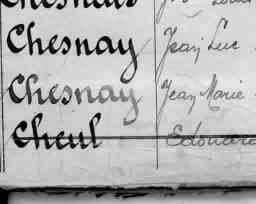 Chesnay Jean Luc
Chesnay Jean Marie
Cheul Edouard